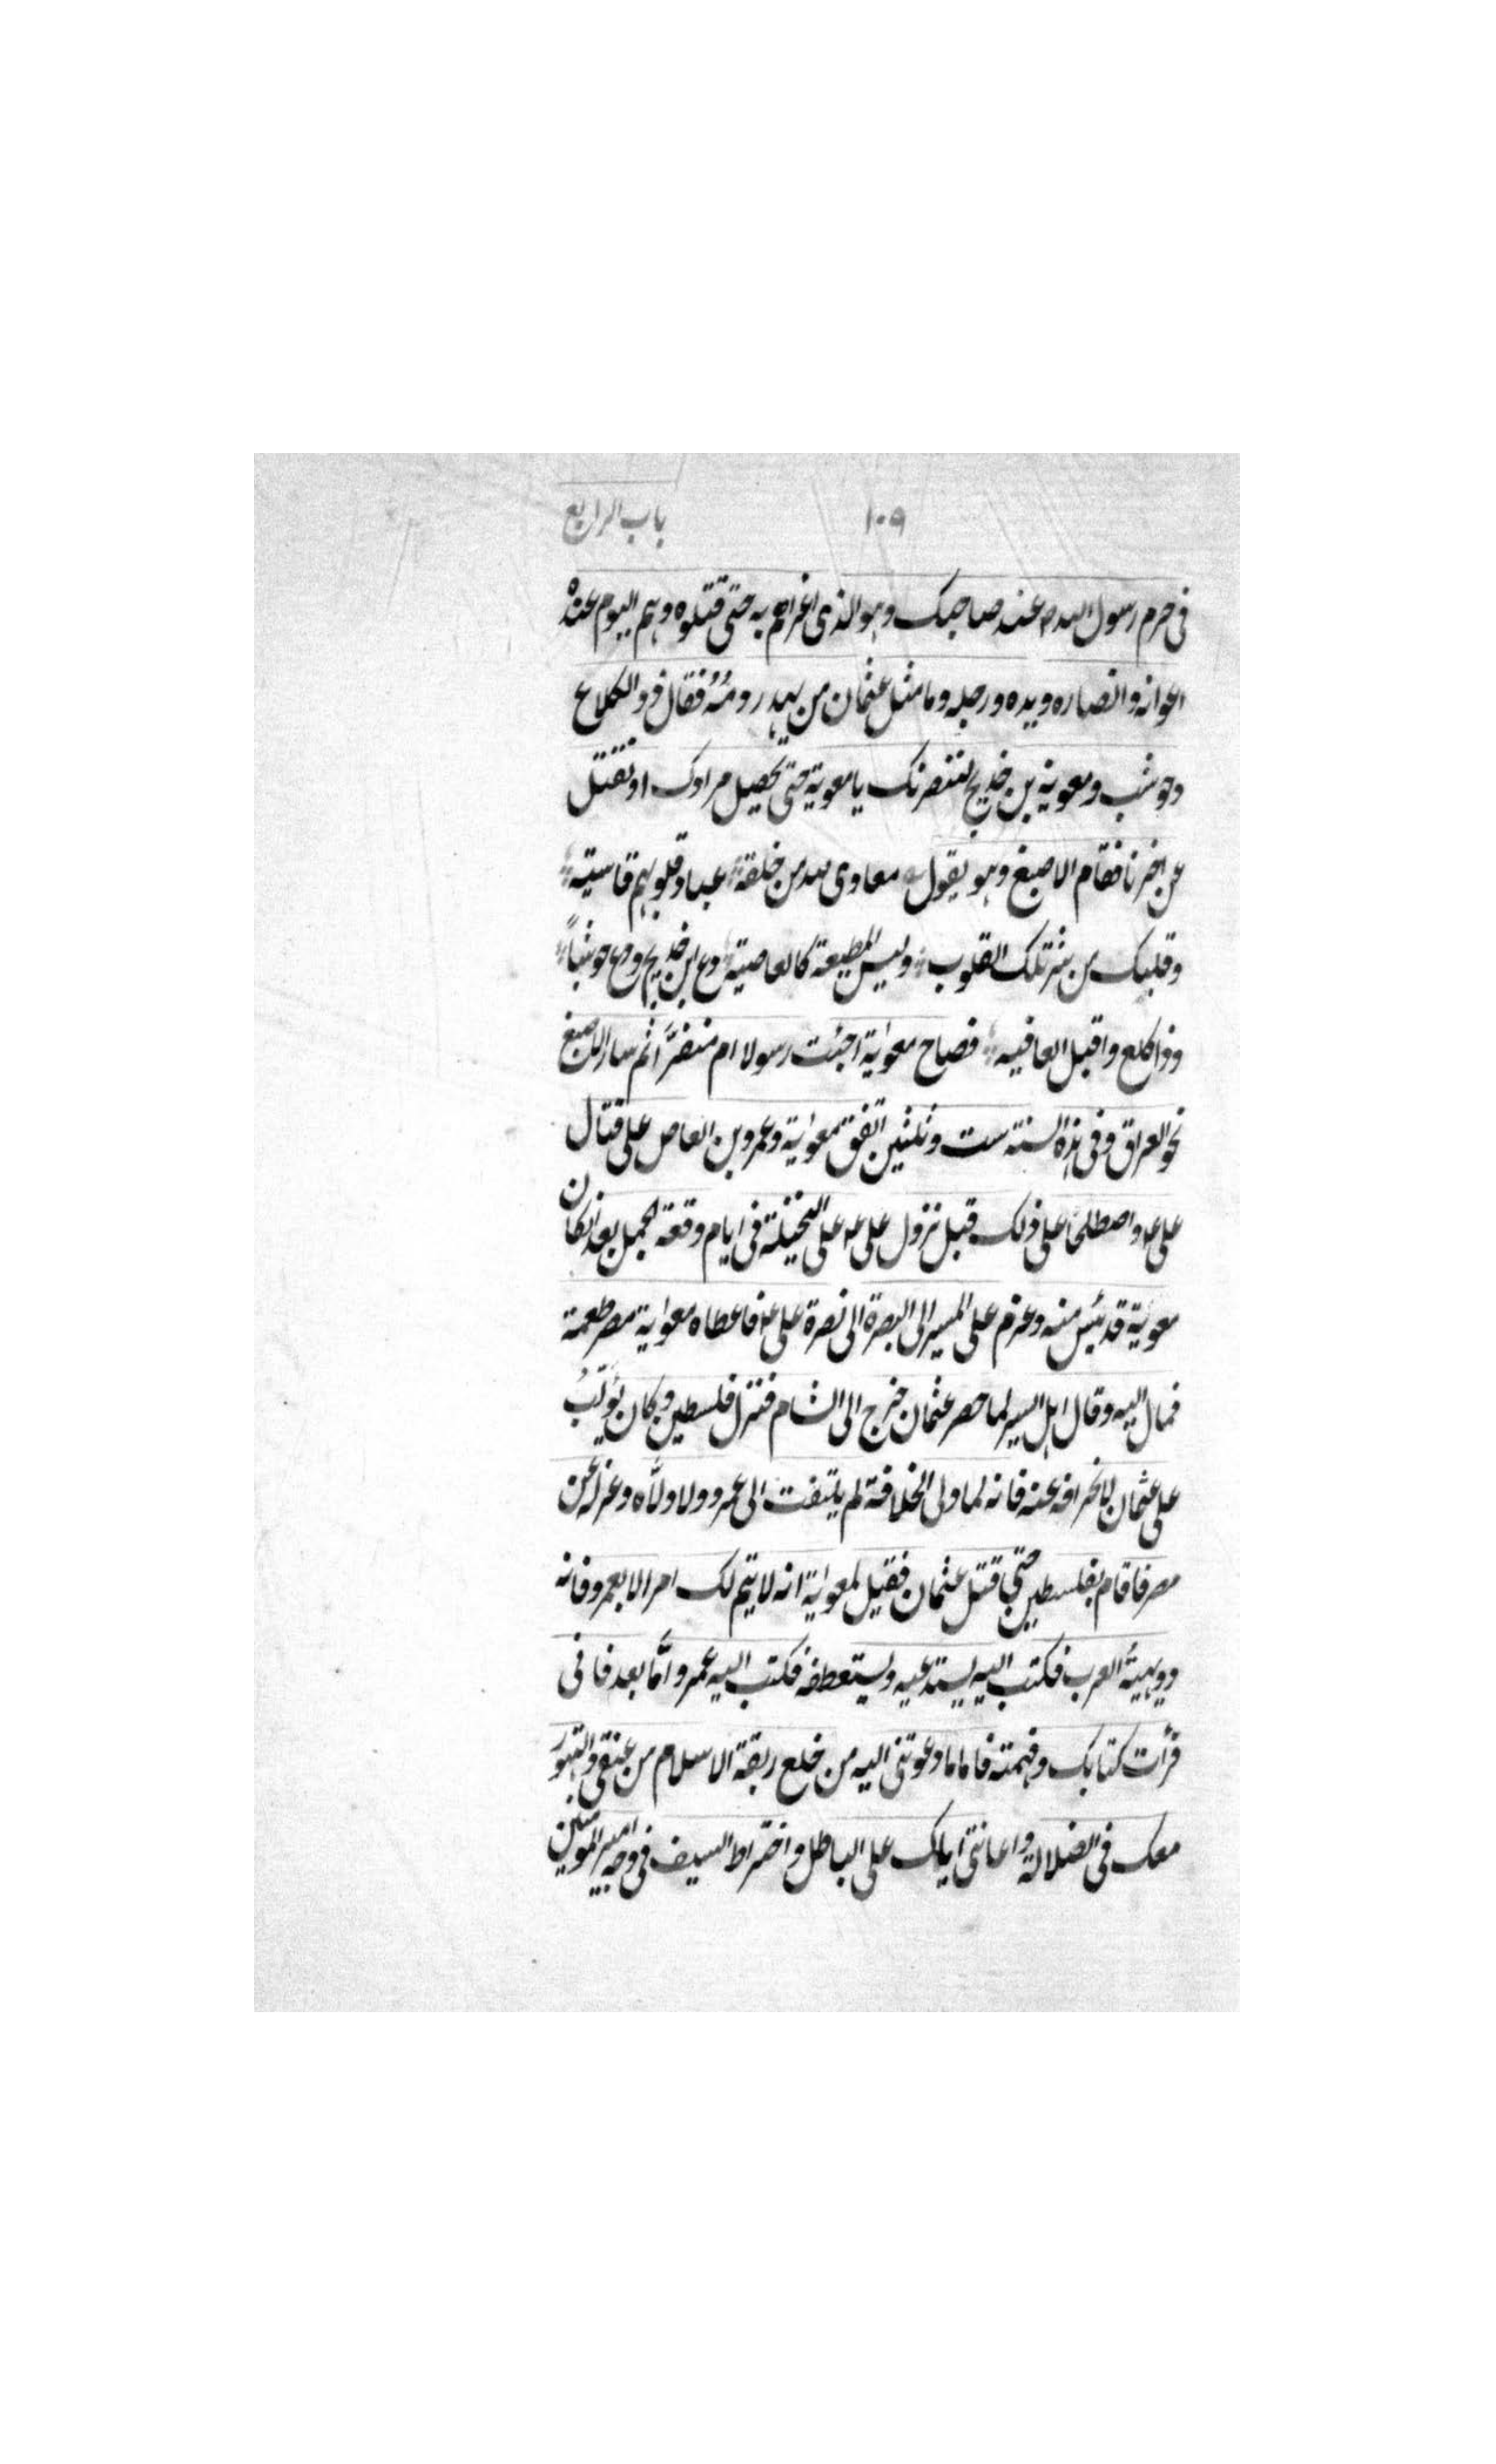 ١٠٩ باب الرابع
فی حرم رسول الله ص عند صاحبک وهو الذی اغراهم به حتی قتلوه وهم الیوم عنده
اعوانه وانصاره ویده ورجله وما مثل عثمان من یهدر دمه فقال ذو الکلاع
وحوشب ومعویة بن خدیج لننصرنک یا معویة حتی تحصیل مرادک او نقتل
عن اخرنا فقام الاصبغ وهو یقول معاوی لله من خلقه عباد قلوبهم قاسیة
وقلبک من شر تلک القلوب ولیس المطیعة کالعاصیة دع ابن خدیج ودع حوشباً
وذا کلع واقبل العافیه فصاح معویة اجئت رسولا ام منفرّا ثم سار الاصبغ
نحو العراق وفی هذه السنة ست وثلثین اتفق معویة وعمرو بن العاص علی قتال
علی ع واصطلحا علی ذلک قبل نزول علی ع علی النخیلة فی ایام وقعة الجمل بعد ان کان
معویة قد یئس منه وعزم علی المسیر الی البصرة الی نصرة علی ع فاعطاه معویة مصر طعمة
فمال الیه وقال اهل السیر لما حصر عثمان خرج الی الشام فنزل فلسطین وکان یؤلب
علی عثمان لانحرافه عنه فانه لما ولی الخلافة لم یلتفت الی عمرو ولا ولّاه وعزله عن
مصر فاقام بفلسطین حتی قتل عثمان فقیل لمعویة انه لا یتم لک امر الا بعمرو فانه
دویهیة العرب فکتب الیه یستدعیه ویستعطفه فکتب الیه عمرو امّا بعد فانی
قرأت کتابک وفهمته فاما ما دعوتنی الیه من خلع ربقة الاسلام من عنقی والتهور
معک فی الضلالة واعانتی ایاک علی الباطل واختراط السیف فی وجه امیر المومنین